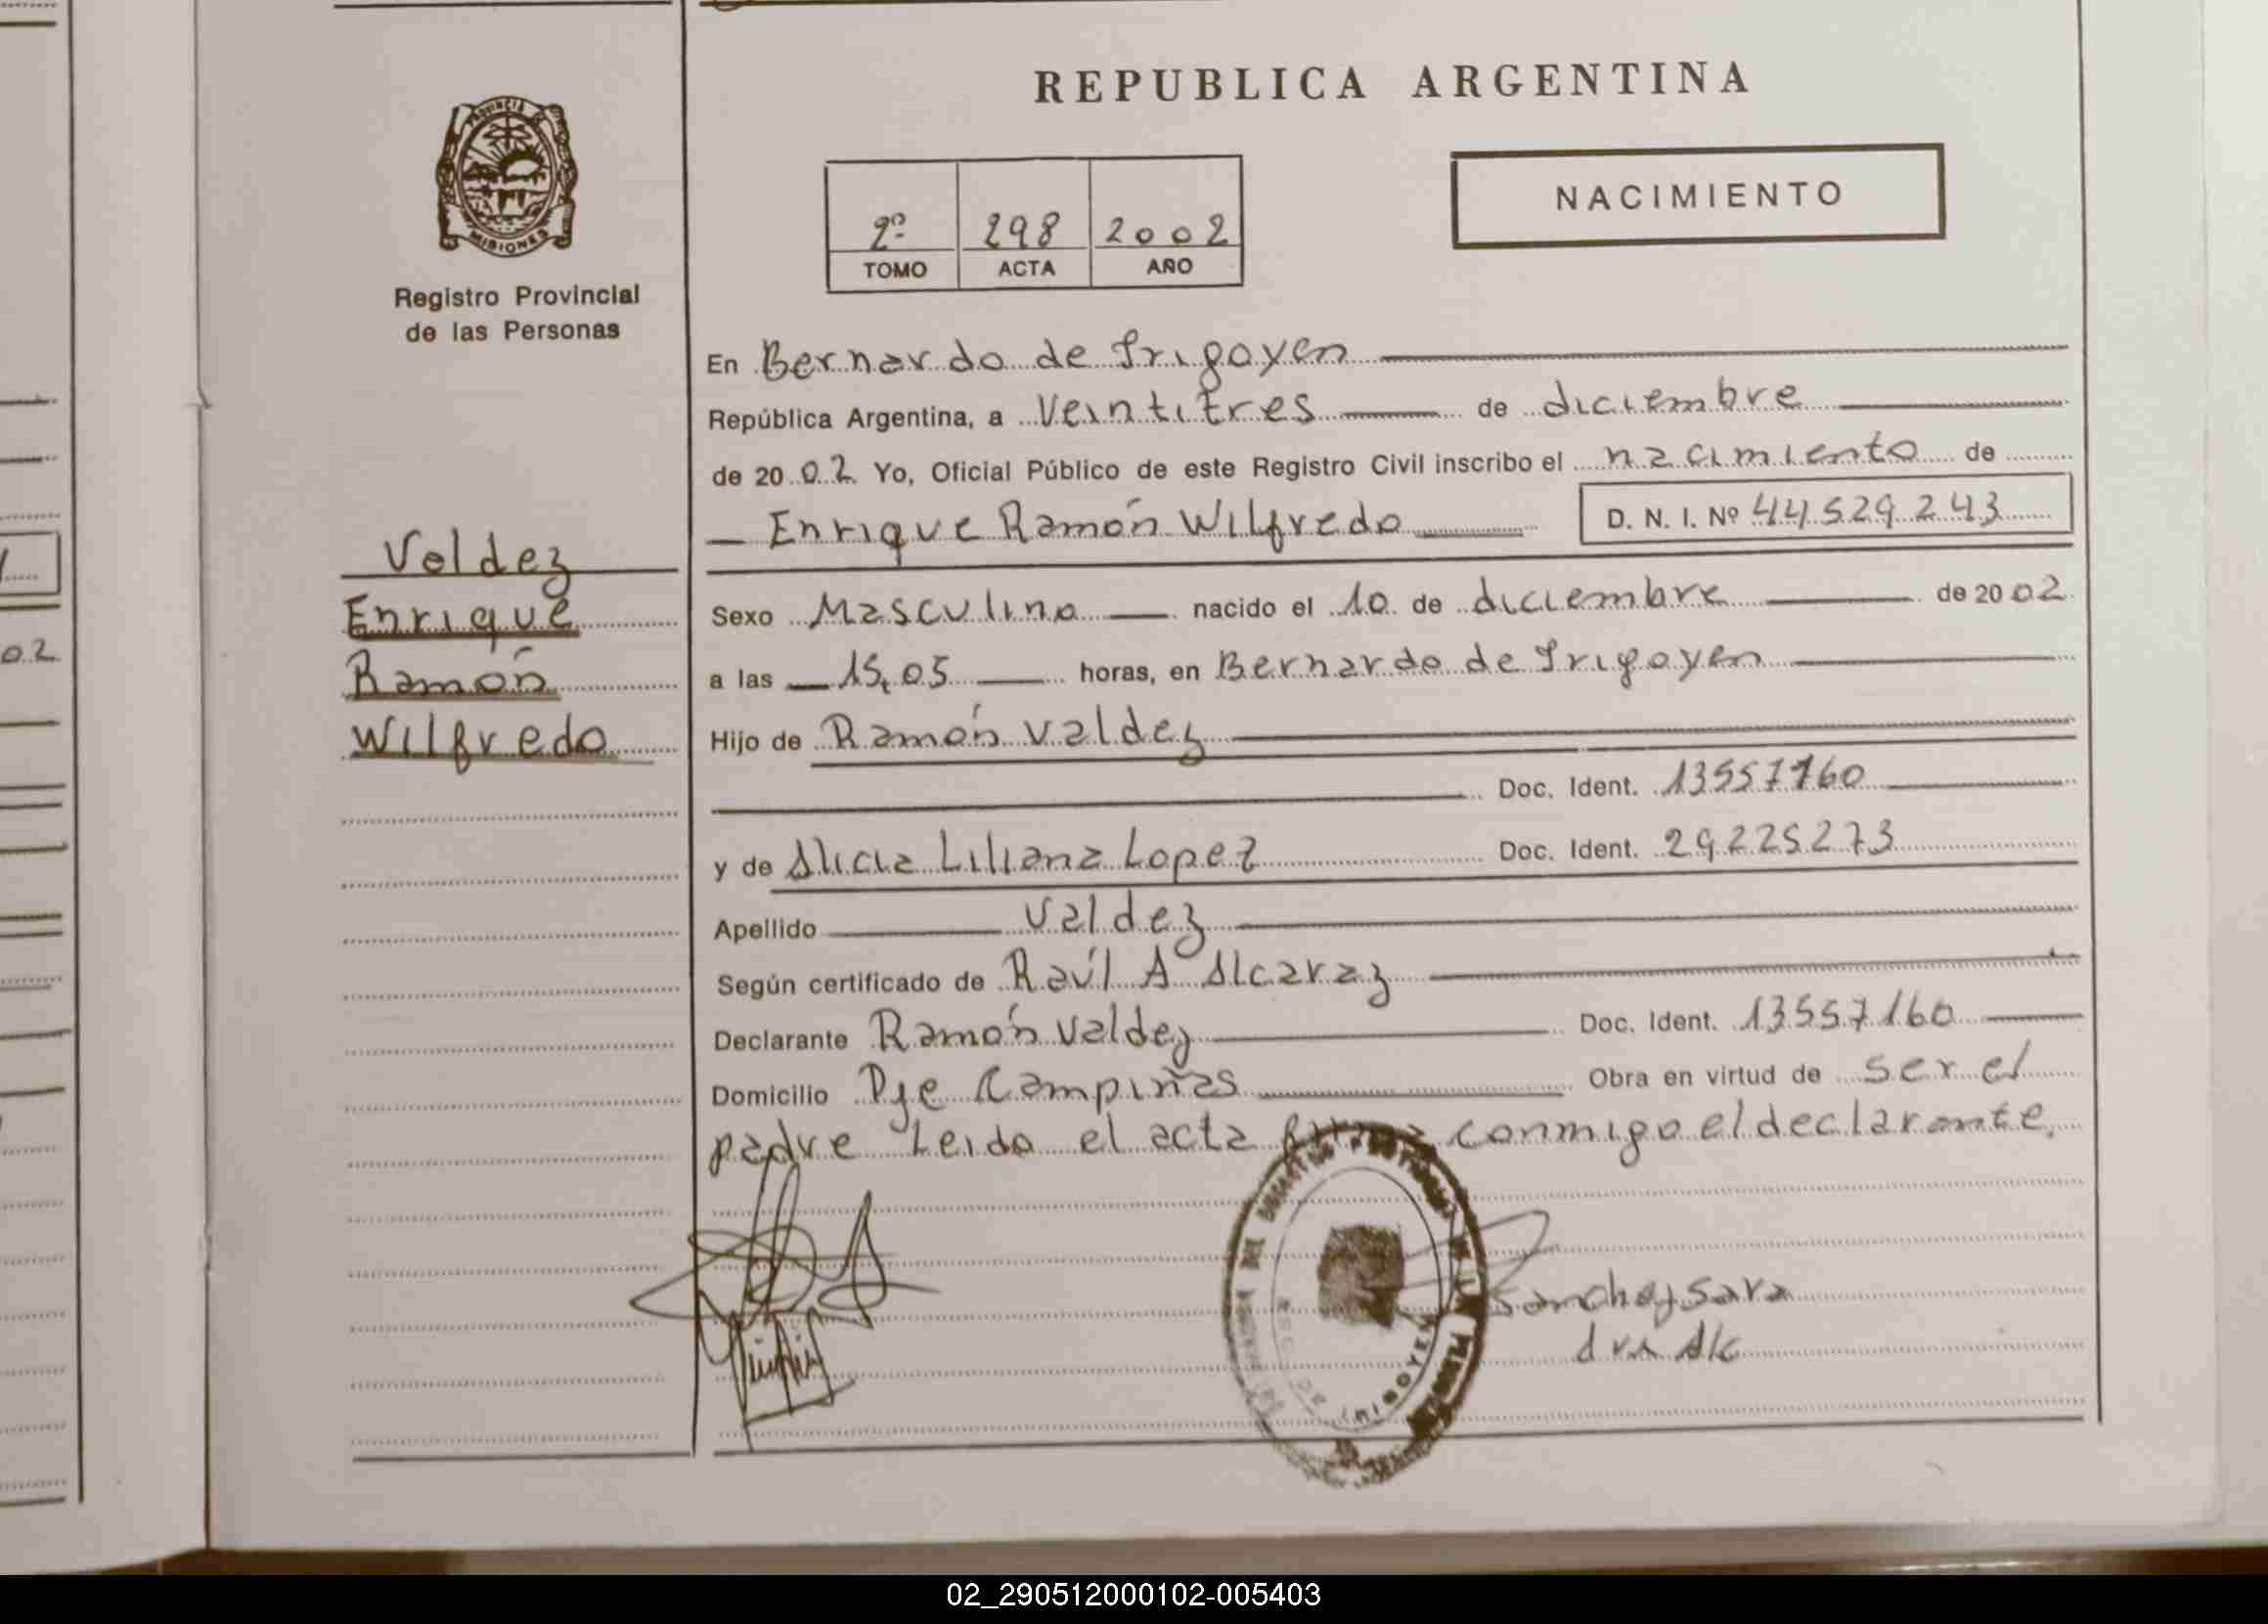 REPUBLICA ARGENTINA
PROVINCIA DE
MISIONES
Registro Provincial
de las Personas
2º 298 2002
TOMO ACTA AÑO
NACIMIENTO
En Bernardo de Irigoyen
República Argentina, a Veintitres de diciembre
de 2002 Yo, Oficial Público de este Registro Civil inscribo el nacimiento de
Enrique Ramón Wilfredo D. N. I. Nº 44529243
Valdez
Enrique
Ramón
Wilfredo
Sexo Masculino nacido el 10 de diciembre de 2002
a las 15,05 horas, en Bernardo de Irigoyen
Hijo de Ramón Valdez
Doc. Ident. 13557160
y de Alicia Liliana Lopez Doc. Ident. 29225273
Apellido Valdez
Según certificado de Raúl A Alcaraz
Declarante Ramón Valdez Doc. Ident. 13557160
Domicilio Pje Campiñas Obra en virtud de ser el
padre Leido el acta firma conmigo el declarante.
Sanchez Sara
02
02_290512000102-005403